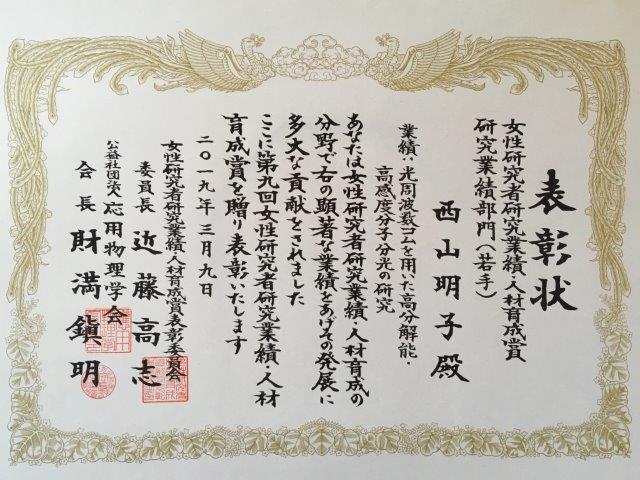 表彰状
女性研究者研究業績・人材育成賞
研究業績部門(若手)
西山明子殿
業績:光周波数コムを用いた高分解能・
高感度分子分光の研究
あなたは女性研究者研究業績・人材育成の
分野で右の顕著な業績をあげその発展に
多大な貢献をされました
ここに第九回女性研究者研究業績・人材
育成賞を贈り表彰いたします
二〇一九年三月九日
女性研究者研究業績・人材育成賞表彰委員会
委員長 近藤高志
公益社団法人 応用物理学会
会長 財満鎭明